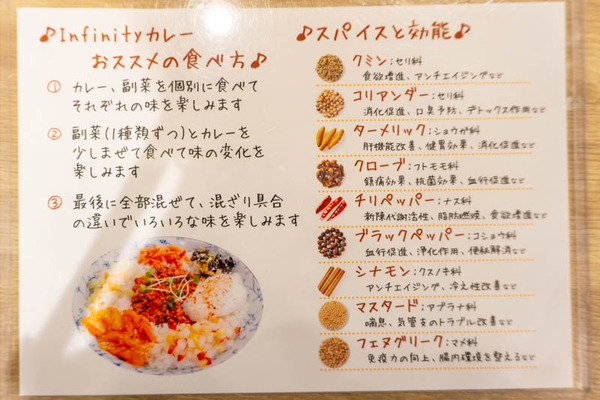 ♪Infinityカレー
おススメの食べ方♪
① カレー、副菜を個別に食べて
それぞれの味を楽しみます
② 副菜(1種類ずつ)とカレーを
少しまぜて食べて味の変化を
楽しみます
③ 最後に全部混ぜて、混ざり具合
の違いでいろいろな味を楽しみます
♪スパイスと効能♪
クミン:セリ科
食欲増進、アンチエイジングなど
コリアンダー:セリ科
消化促進、口臭予防、デトックス作用など
ターメリック:ショウガ科
肝機能改善、健胃効果、消化促進など
クローブ:フトモモ科
鎮痛効果、抗菌効果、血行促進など
チリペッパー:ナス科
新陳代謝活性、脂肪燃焼、食欲増進など
ブラックペッパー:コショウ科
血行促進、浄化作用、便秘解消など
シナモン:クスノキ科
アンチエイジング、冷え性改善など
マスタード:アブラナ科
喘息、気管支のトラブル改善など
フェヌグリーク:マメ科
免疫力の向上、腸内環境を整えるなど